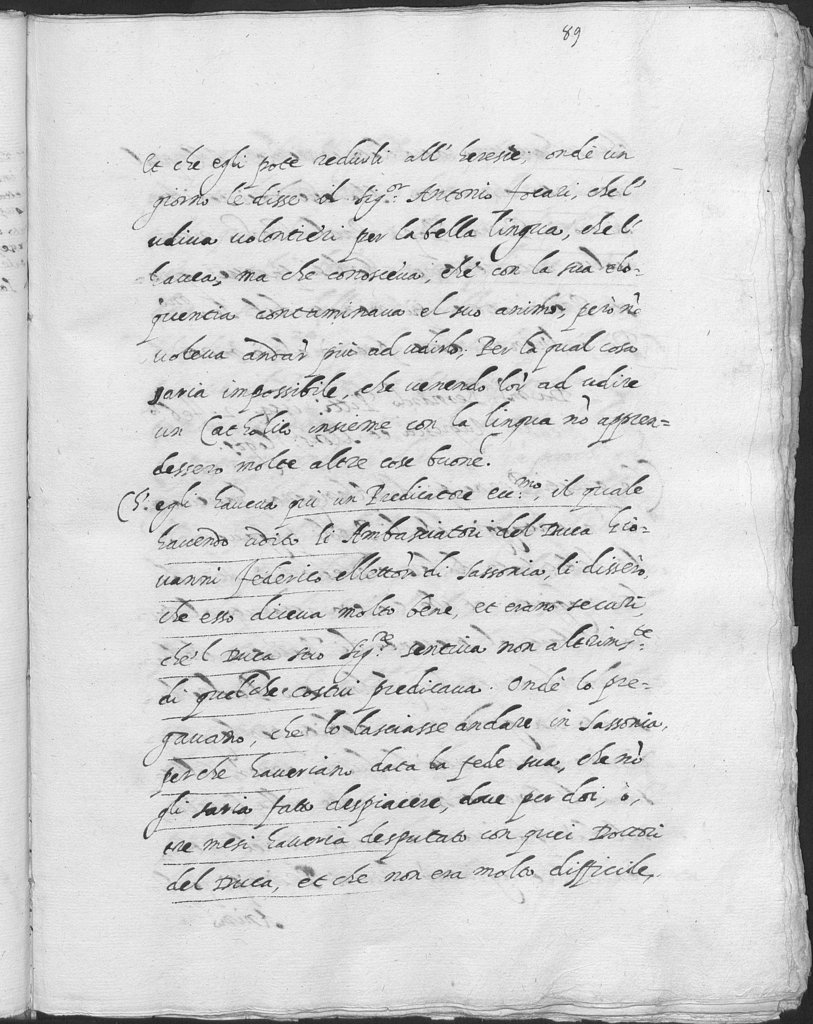 89
Et che egli potè redurli all' heresie; onde un
giorno le disse il Sig.or Antonio focari, che l'
udiva volontieri per la bella lingua, che l'
havea, ma che conosceva, che con la sua elo-
quentia contaminava el suo animo, però nō
voleva andar più ad udirlo. Per la qual cosa
saria impossibile, che venendo lor ad udire
un Catholico insieme con la lingua nō appren=
dessero molte altre cose buone.
Ch'egli haveva qui un Predicatore ecc.mo, il quale
havendo udito li Ambasciatori del Duca Gio-
vanni Federico ellettor di Sassonia, li dissero,
che esso diceva molto bene, et erano securi,
che'l Duca suo Sig.re sentiva non altrim.te
di quel che costui predicava. Onde lo pre-
gavano, che lo lasciasse andare in Sassonia,
perche haveriano data la fede sua, che nō
gli saria fatto despiacere, dove per doi, ò,
tre mesi haveria desputato con quei Dottori
del Duca, et che non era molto difficile,